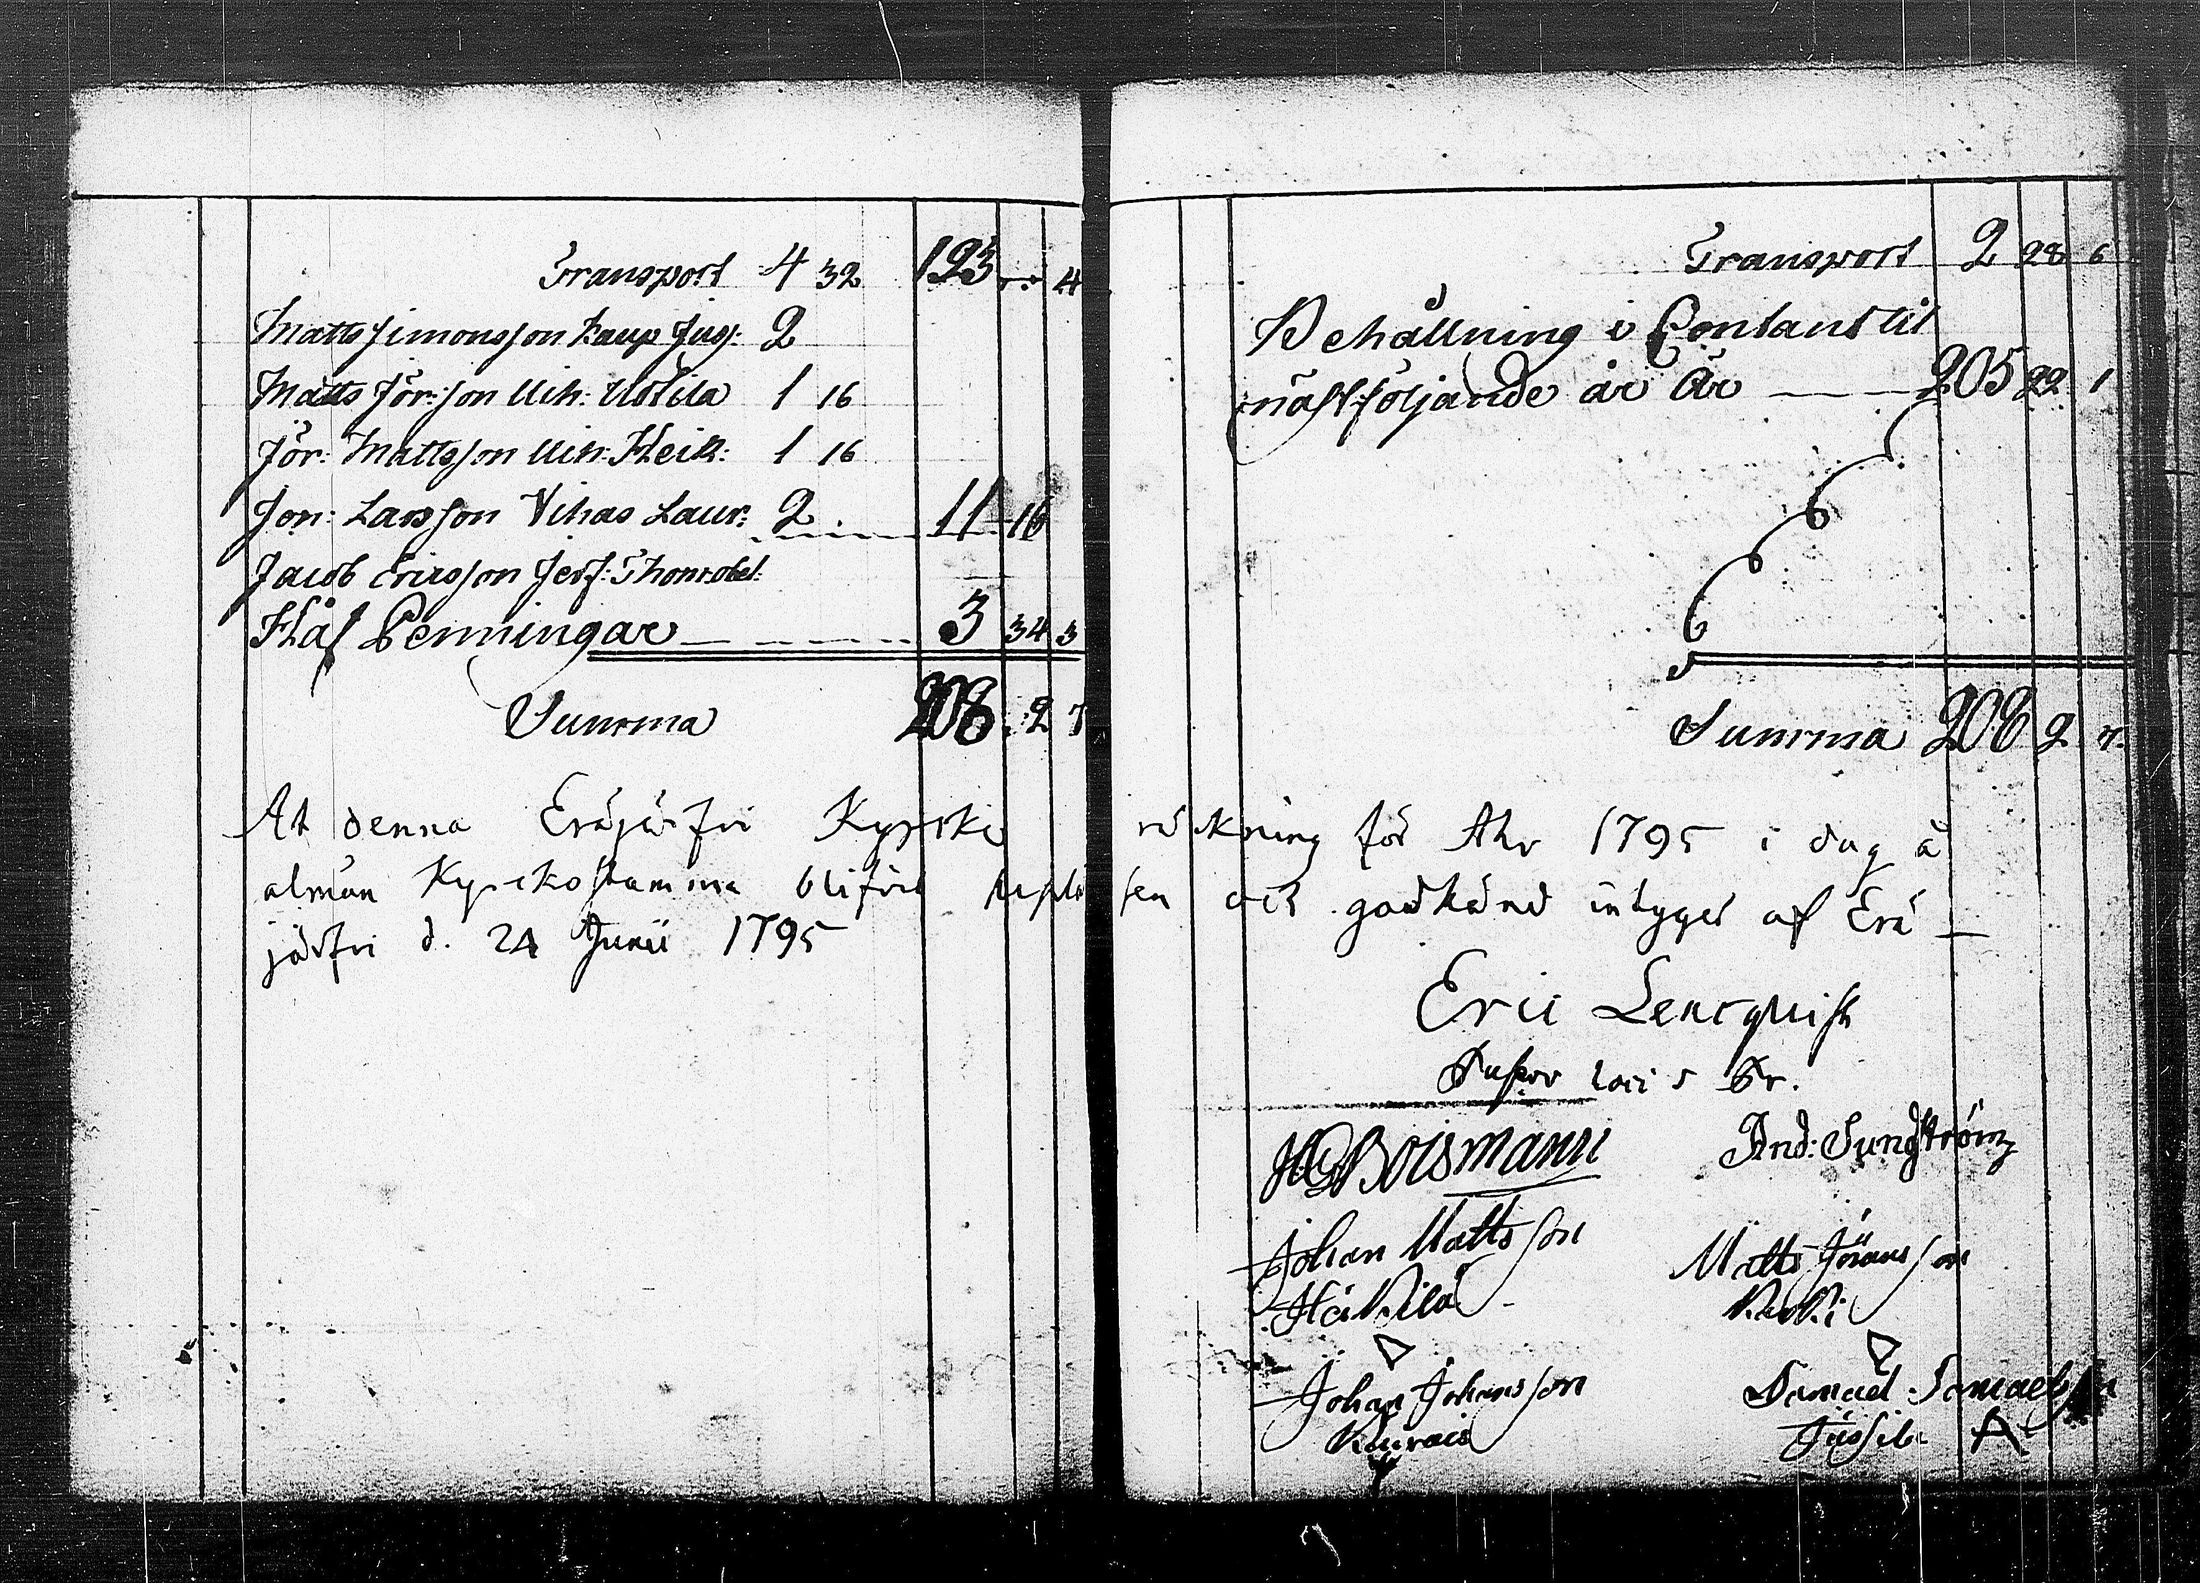 Transport 4 32 123 .. 4
Matts Simonsson Kaup Juss: 2
Matts Jör:son Uih: Uotila 1 16
Jör: Mattsson Uih: Heik: 1 16
Jon: Larsson Vihas Laur: 2. 11 16
Jacob Ericsson Jerf: Thom: obet:
Håf Penningar 3 34 3
Summa 208. 2 7
Transport 2 28 6
Behållning i Contant til
nästföljande år är 205 22 1
Summa 208 2 7.
At denna Eräjärfvi Kyrcko räkning för Ahr 1795 i dag å
alman Kyrckostamma blifvit upläsen och godkänd intyget af Erä
järfvi d. 24 Junii 1795
Eric Lencquist
Past. loci s Pr.
Boismann
And: Sundström
Johan Mattsson
Matts Jöransson
Heikilä
Johan Johansson
Samuel Samuelsson
Jussila